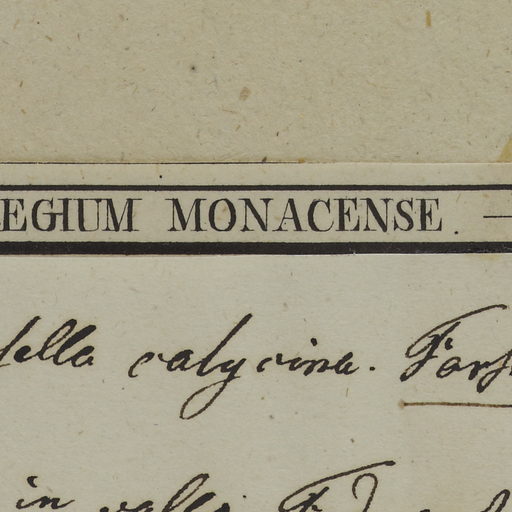 EGIUM MONACENSE.
ella calycina. Forsk
in valle